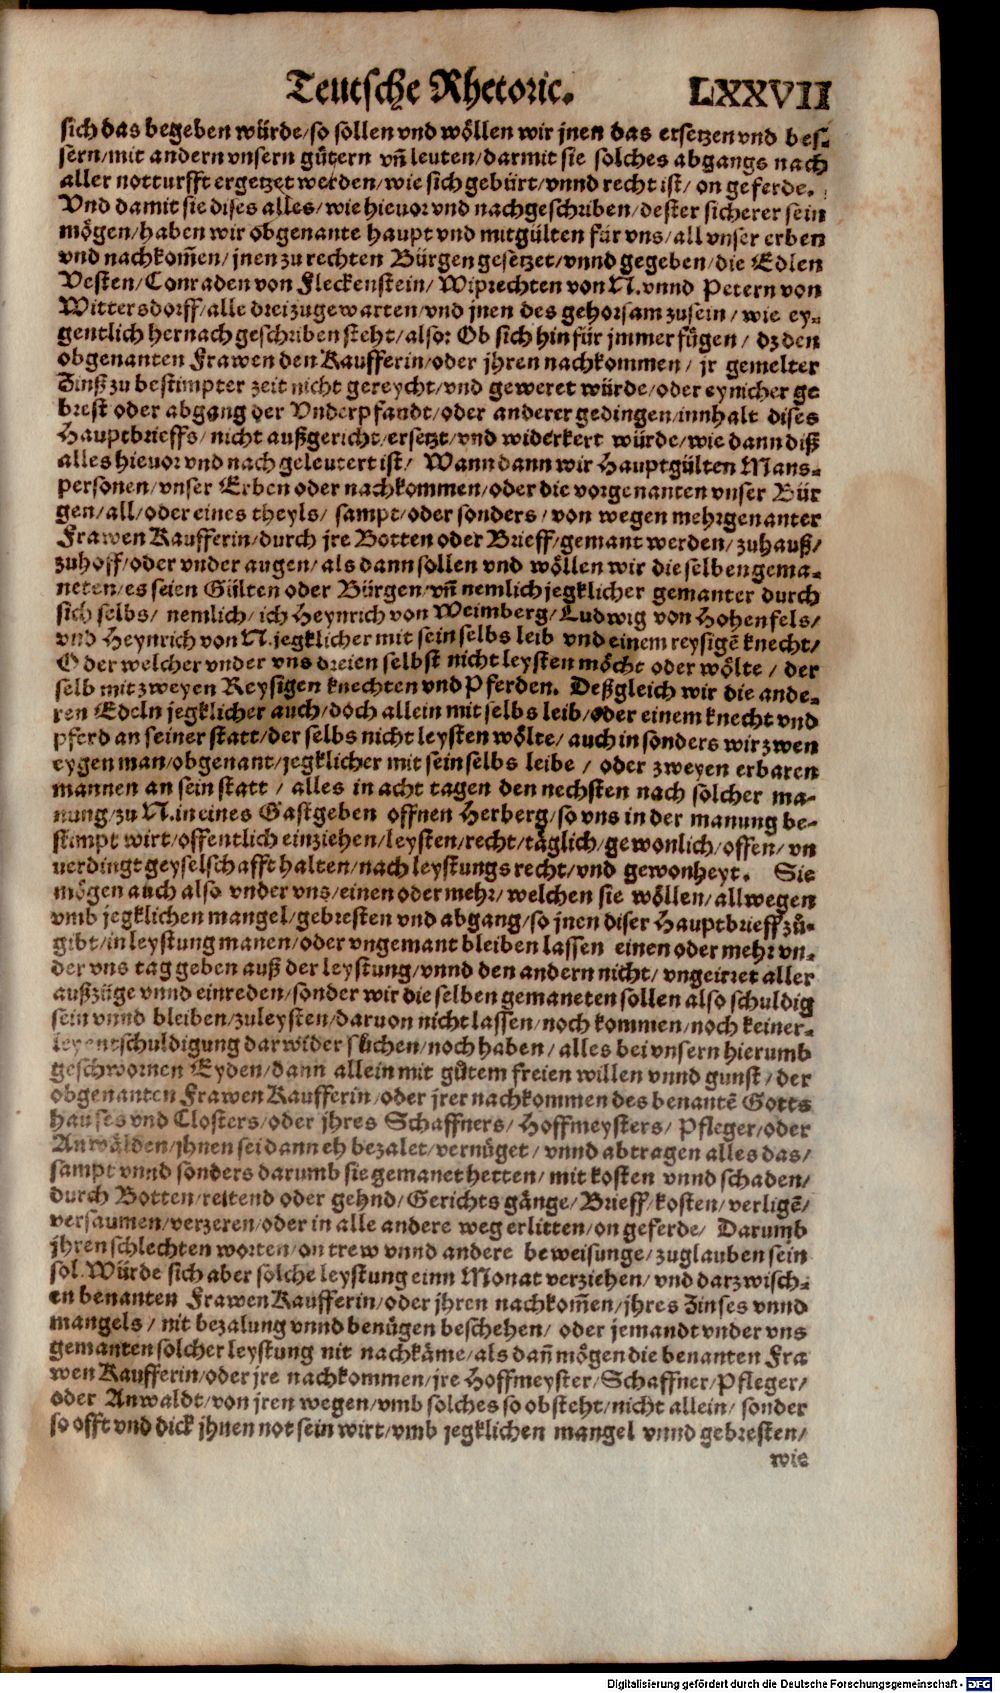 Teutsche Rhetoric. LXXVII
sich das begeben würde/so sollen vnd wöllen wir jnen das ersetzen vnd bes-
sern/mit andern vnsern gůtern vñ leuten/darmit sie solches abgangs nach
aller notturfft ergetzet werden/wie sich gebürt/vnnd recht ist/on geferde.
Vnd damit sie dises alles/wie hieuor vnd nachgeschriben/dester sicherer sein
mögen/haben wir obgenante haupt vnd mitgülten für vns/all vnser erben
vnd nachkom̃en/jnen zu rechten Bürgen gesetzet/vnnd gegeben/die Edlen
Vesten/Conraden von Fleckenstein/Wiprechten von N. vnnd Petern von
Wittersdorff/alle drei zugewarten/vnd jnen des gehorsam zusein/wie ey-
gentlich hernach geschriben steht/also: Ob sich hinfür jmmer fůgen/dz den
obgenanten Frawen den Kaufferin/oder jhren nachkommen/jr gemelter
Zinß zu bestimpter zeit nicht gereycht/vnd geweret würde/oder eynicher ge
brest oder abgang der Vnderpfandt/oder anderer gedingen/innhalt dises
Hauptbrieffs/nicht außgericht/ersetzt/vnd widerkert würde/wie dann diß
alles hieuor vnd nach geleutert ist/ Wann dann wir Hauptgülten Mans-
personen/vnser Erben oder nachkommen/oder die vorgenanten vnser Bür
gen/all/oder eines theyls/ sampt/oder sonders/von wegen mehrgenanter
Frawen Kaufferin/durch jre Botten oder Brieff/gemant werden/zuhauß/
zuhoff/oder vnder augen/als dann sollen vnd wöllen wir die selben gema-
neten/es seien Gülten oder Bürgen/vñ nemlich jegklicher gemanter durch
sich selbs/ nemlich/ich Heynrich von Weimberg/Ludwig von Hohenfels/
vnd Heynrich von N. jegklicher mit sein selbs leib vnd einem reysigẽ knecht/
Oder welcher vnder vns dreien selbst nicht leysten möcht oder wölte/ der
selb mit zweyen Reysigen knechten vnd Pferden. Deßgleich wir die ande-
ren Edeln jegklicher auch/doch allein mit selbs leib/oder einem knecht vnd
pferd an seiner statt/der selbs nicht leysten wölte/auch in sonders wir zwen
eygen man/obgenant/jegklicher mit sein selbs leibe/ oder zweyen erbaren
mannen an sein statt/ alles in acht tagen den nechsten nach solcher ma-
nung/zu N. in eines Gastgeben offnen Herberg/so vns in der manung be-
stimpt wirt/offentlich einziehen/leysten/recht/täglich/gewonlich/offen/vn
uerdingt geyselschafft halten/nach leystungs recht/vnd gewonheyt. Sie
mögen auch also vnder vns/einen oder mehr/welchen sie wöllen/allwegen
vmb jegklichen mangel/gebresten vnd abgang/so jnen diser Hauptbrieff zů-
gibt/in leystung manen/oder vngemant bleiben lassen einen oder mehr vn-
der vns tag geben auß der leystung/vnnd den andern nicht/vngeirret aller
außzüge vnnd einreden/sonder wir die selben gemaneten sollen also schuldig
sein vnnd bleiben/zuleysten/daruon nicht lassen/noch kommen/noch keiner-
ley entschuldigung darwider sůchen/noch haben/alles bei vnsern hierumb
geschwornen Eyden/dann allein mit gůtem freien willen vnnd gunst/der
obgenanten Frawen Kaufferin/oder jrer nachkommen des benantẽ Gotts
hauses vnd Closters/oder jhres Schaffners/Hoffmeysters/Pfleger/oder
Anwälden/jhnen sei dann eh bezalet/vernůget/vnnd abtragen alles das/
sampt vnnd sonders darumb sie gemanet hetten/mit kosten vnnd schaden/
durch Botten/reitend oder gehnd/Gerichts gänge/Brieff/kosten/verligẽ/
versaumen/verzeren/oder in alle andere weg erlitten/on geferde/ Darumb
jhren schlechten worten/on trew vnnd andere beweisunge/zuglauben sein
sol. Würde sich aber solche leystung einn Monat verziehen/vnd darzwisch-
en benanten Frawen Kaufferin/oder jhren nachkom̃en/jhres Zinses vnnd
mangels/ nit bezalung vnnd benůgen beschehen/ oder jemandt vnder vns
gemanten solcher leystung nit nachkäme/als dañ mögen die benanten Fra
wen Kaufferin/oder jre nachkommen/jre Hoffmeyster/Schaffner/Pfleger/
oder Anwaldt/von jren wegen/vmb solches so obsteht/nicht allein/ sonder
so offt vnd dick jhnen not sein wirt/vmb jegklichen mangel vnnd gebresten/
wie
Digitalisierung gefördert durch die Deutsche Forschungsgemeinschaft - DFG